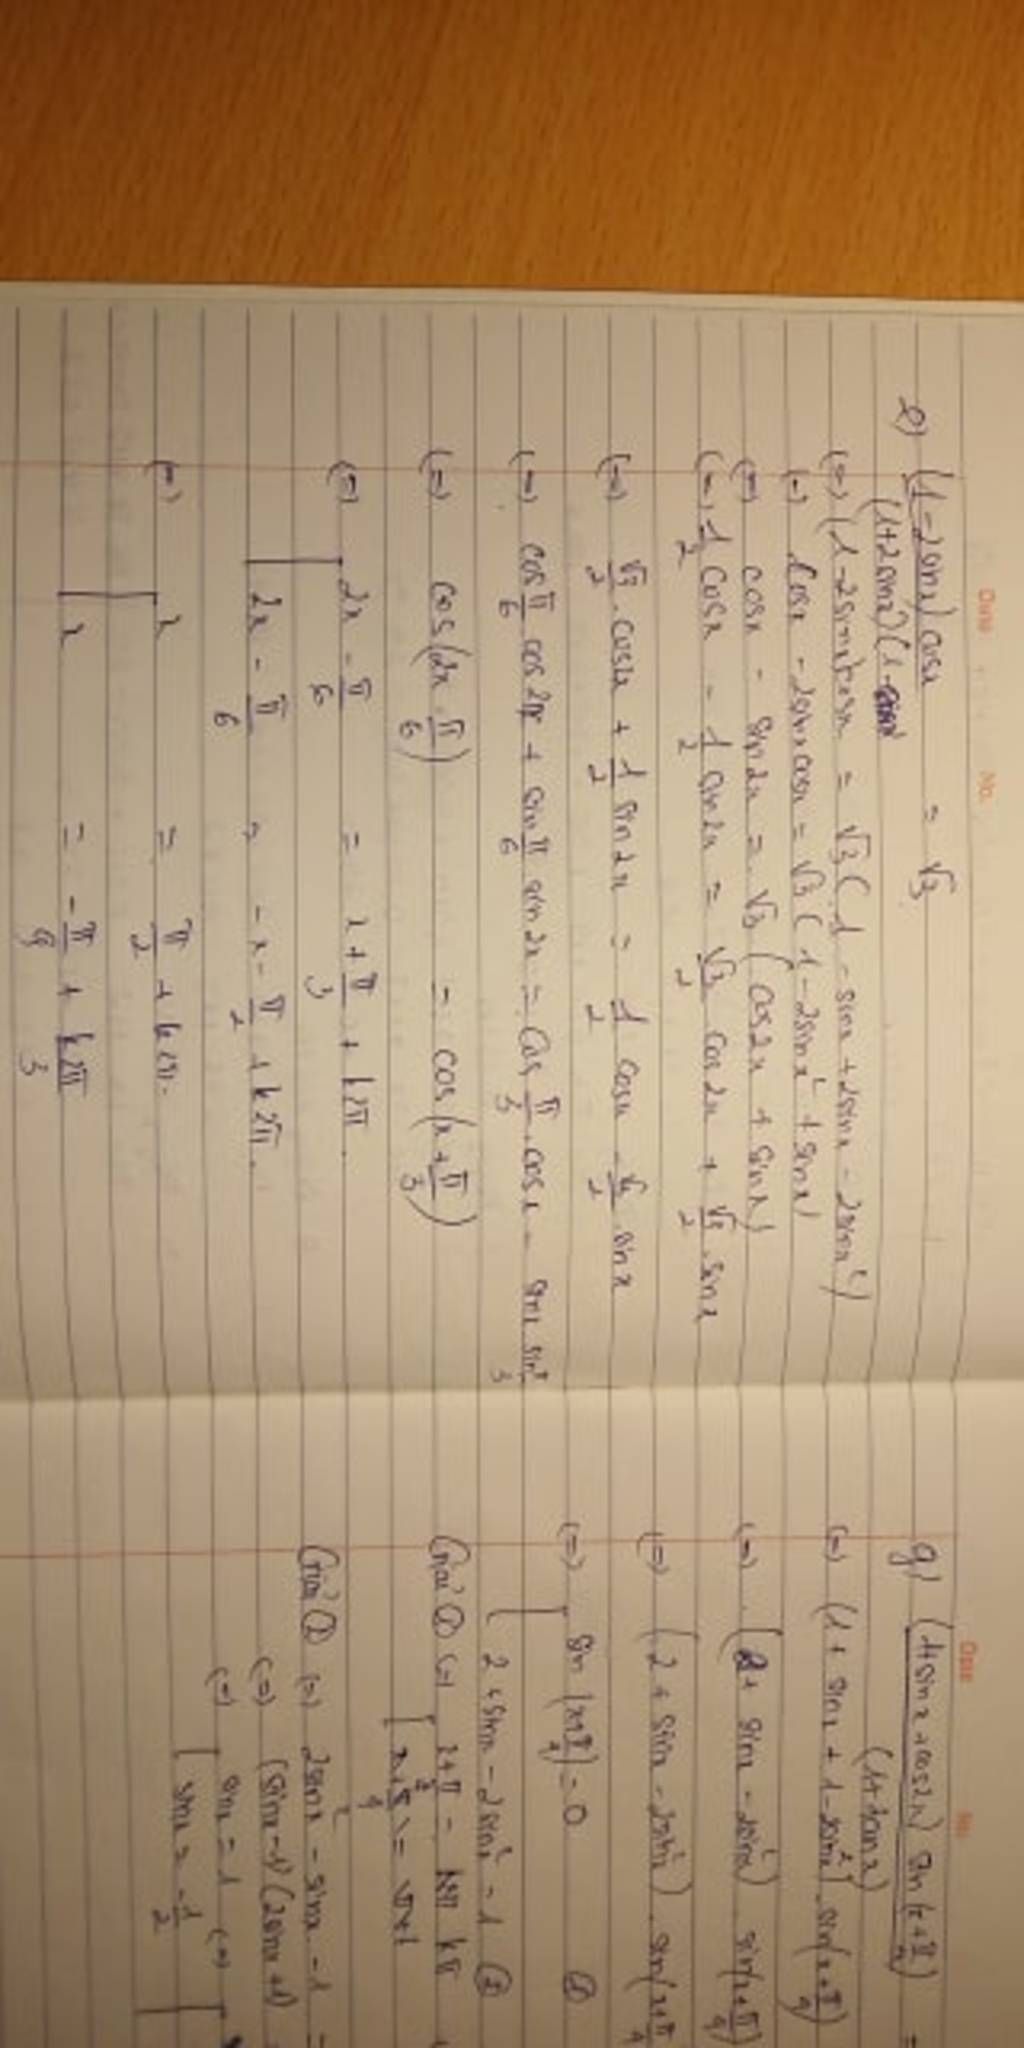 Date No.
e) (1-2sinx) cosx / (1+2sinx)(1-sinx) = √3
(=) (1-2sinx)cosx = √3 (1-sinx+2sinx-2sinx²)
(=) cosx - 2sinxcosx = √3 (1-2sinx² + sinx)
(=) cosx - sin2x = √3 (cos2x + sinx)
(=) 1/2 cosx - 1/2 sin2x = √3/2 cos2x + √3/2 . sinx
(=) √3/2 . cos2x + 1/2 sin2x = 1/2 cosx - √3/2 . sinx
(=) cos π/6 cos2x + sin π/6 sin2x = cos π/3 . cosx - sinx sin π/3
(=) cos(2x - π/6) = cos(x + π/3)
(=) [ 2x - π/6 = x + π/3 + k2π.
2x - π/6 = -x - π/2 + k2π.
(=) [ x = π/2 + k2π.
x = -π/9 + k2π/3
Date No.
g) (1+sinx+cos2x) sin(x+π/4) / (1+tanx) =
(=) (1 + sinx + 1-2sin²x) . sin(x+π/4)
(=) . (2 + sinx - 2sin²x) . sin(x+π/4)
(=) (2 + sinx - 2sin²x) . sin(x+π/4
(=) [ sin(x+π/4) = 0 ①
2 + sinx - 2sin²x = 1 ②
Giải ① (=) [ x+π/4 = kπ
x+π/4 =
Giải ② (=) 2sin²x - sinx - 1 =
(=) (sinx-1)(2sinx+1) =
(=) [ sinx = 1 (=) [
sinx = -1/2